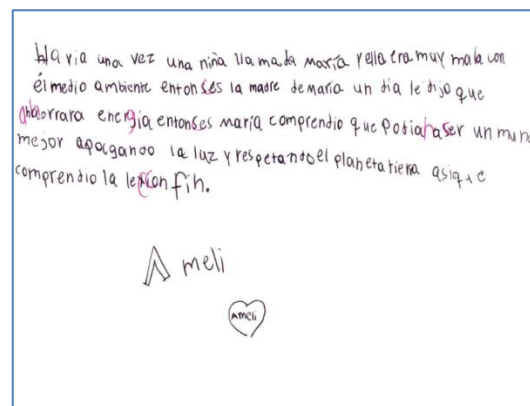 Havia una vez una niña llamada maría y ella era muy mala con
él medio ambiente entonses la madre de maría un dia le dijo que
ahborrara energia entonses maría comprendio que podia haser un mun
mejor apagando la luz y respetando el planeta tierra asique
comprendio la lexion fin.
Ameli
Ameli